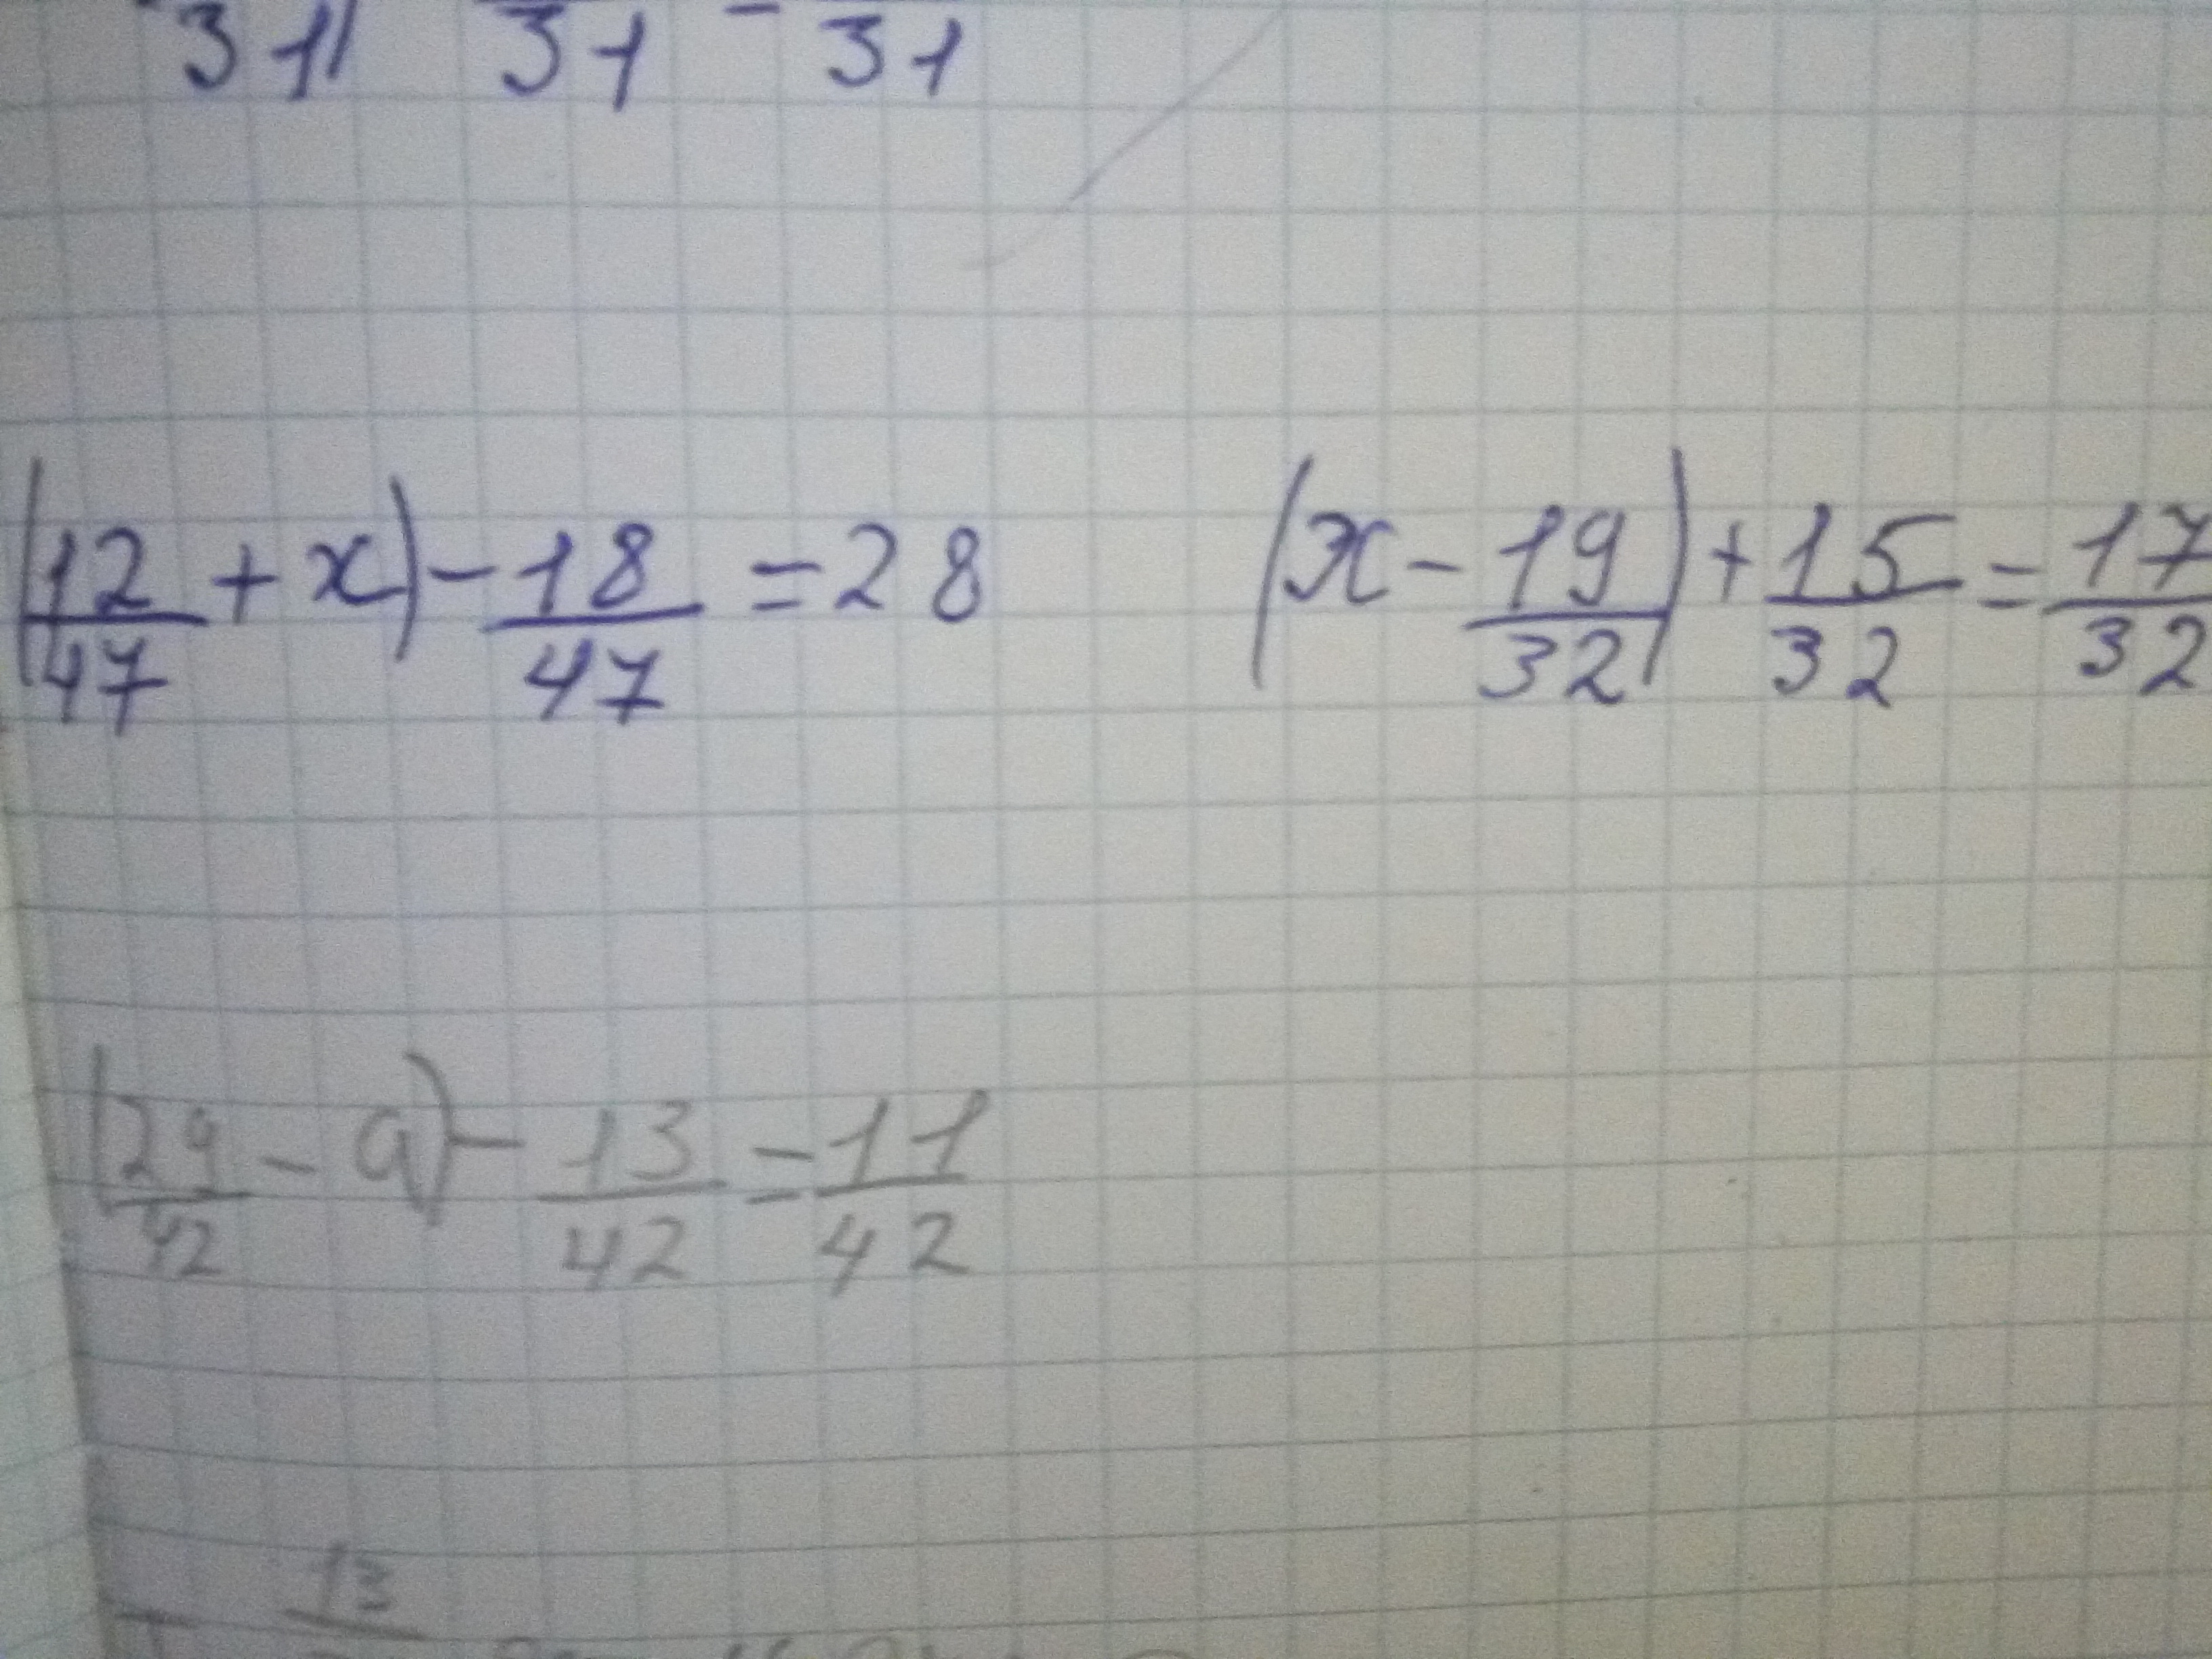 31) 31 - 31
(12/47 + x) - 18/47 = 28 (x - 19/32) + 15/32 = 17/32
(29/42 - a) - 13/42 = 11/42
13